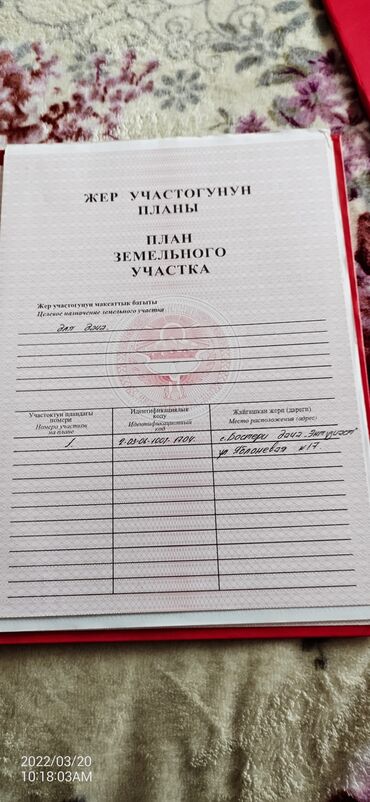 ЖЕР УЧАСТОГУНУН
ПЛАНЫ
ПЛАН
ЗЕМЕЛЬНОГО
УЧАСТКА
Жер участогунун максаттык багыты
Целевое назначение земельного участка
для дача.
Участоктун пландагы
номери
Номера участков
на плане
Идентификациялык
коду
Идентификационный
код
Жайгашкан жери (дареги)
Место расположения (адрес)
1.
2-03-06-1001-1704
с. Бостери дача "Энтузиаст"
ул Яблоневая н17
2022/03/20
10:18:03AM